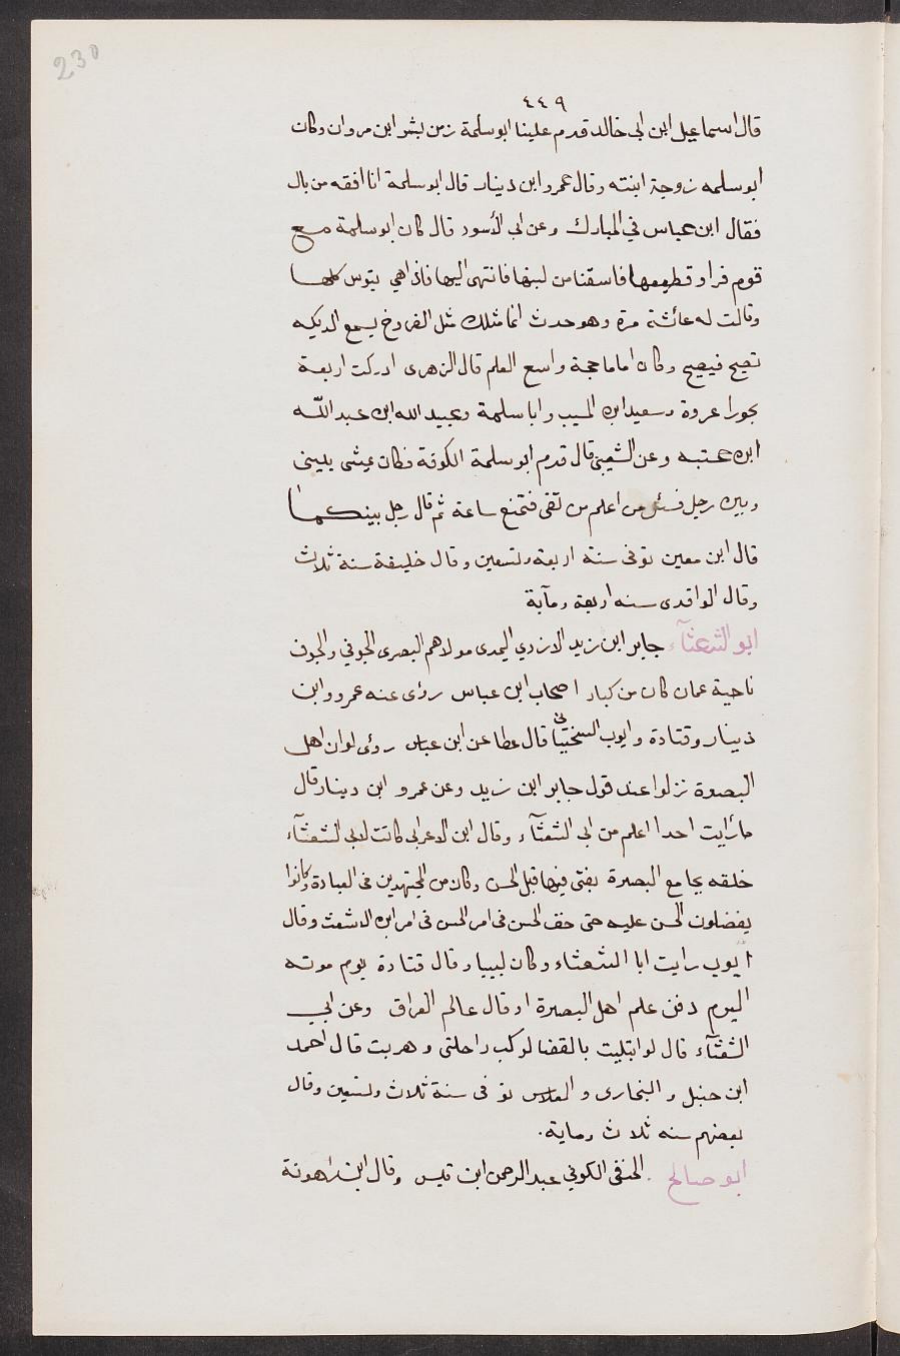 230
٤٤٩
قال اسماعيل ابن ابى خالد قدم علينا ابو سلمة زمن بشر ابن مروان وكان
ابو سلمه زوجة ابنته وقال عمرو ابن دينار قال ابو سلمة انا افقه من بال
فقال ابن عباس في المبارك وعن ابى الأسود قال كان ابو سلمة مع
قوم فراو قطيع فاستقنا من لبنها فانتهى اليها فاذا هي تيوس كلها
وقالت له عائشة مرة وهو حدث انما مثلك مثل الفروخ يسمع الديكه
تصيح فيصيح وكان اماما حجة واسع العلم قال الزهرى ادركت اربعة
بحورا عروة وسعيد ابن المسيب وابا سلمة وعبيد الله ابن عبد الله
ابن عتبه وعن الشعبى قال قدم ابو سلمة الكوفة فكان يمشى بينى
وبين رجل فسئل من اعلم من تقى فتمنع ساعة ثم قال رجل بينكما
قال ابن معين توفى سنة اربعة وتسعين وقال خليفة سنة ثلاث
وقال الواقدى سنه اربعة ومآية
ابو الشعثآء جابر ابن زيد الازدي اليحمدى مولاهم البصرى الجوفي والجوف
ناحية عمان كان من كبار اصحاب ابن عباس روى عنه عمرو وابن
دينار وقتادة وايوب السختيانى قال عطا عن ابن عباس روى لو ان اهل
البصرة نزلوا عند قول جابر ابن زيد وعن عمرو ابن دينار قال
ما رأيت احدا اعلم من ابى الشعثآء وقال ابن الاعرابى كانت لابى الشعثآء
حلقه بجامع البصرة يفتى فيها قبل الحسن وكان من المجتهدين فى العبادة وكانوا
يفضلون الحسن عليه حتى خف الحسن فى امر ابن الاشعث وقال
ايوب رايت ابا الشعثاء وكان لبيبا وقال قتادة يوم موته
اليوم دفن علم اهل البصرة او قال عالم العراق وعن ابى
الشعثآء قال لو ابتليت بالقضا لركبت راحلتى وهربت قال احمد
ابن حنبل والبخارى والفلاس توفى سنة ثلاث وتسعين وقال
بعضهم سنه ثلاث وماية.
ابو صالح الحنفى الكوفي عبد الرحمن ابن قيس وقال ابن راهونة